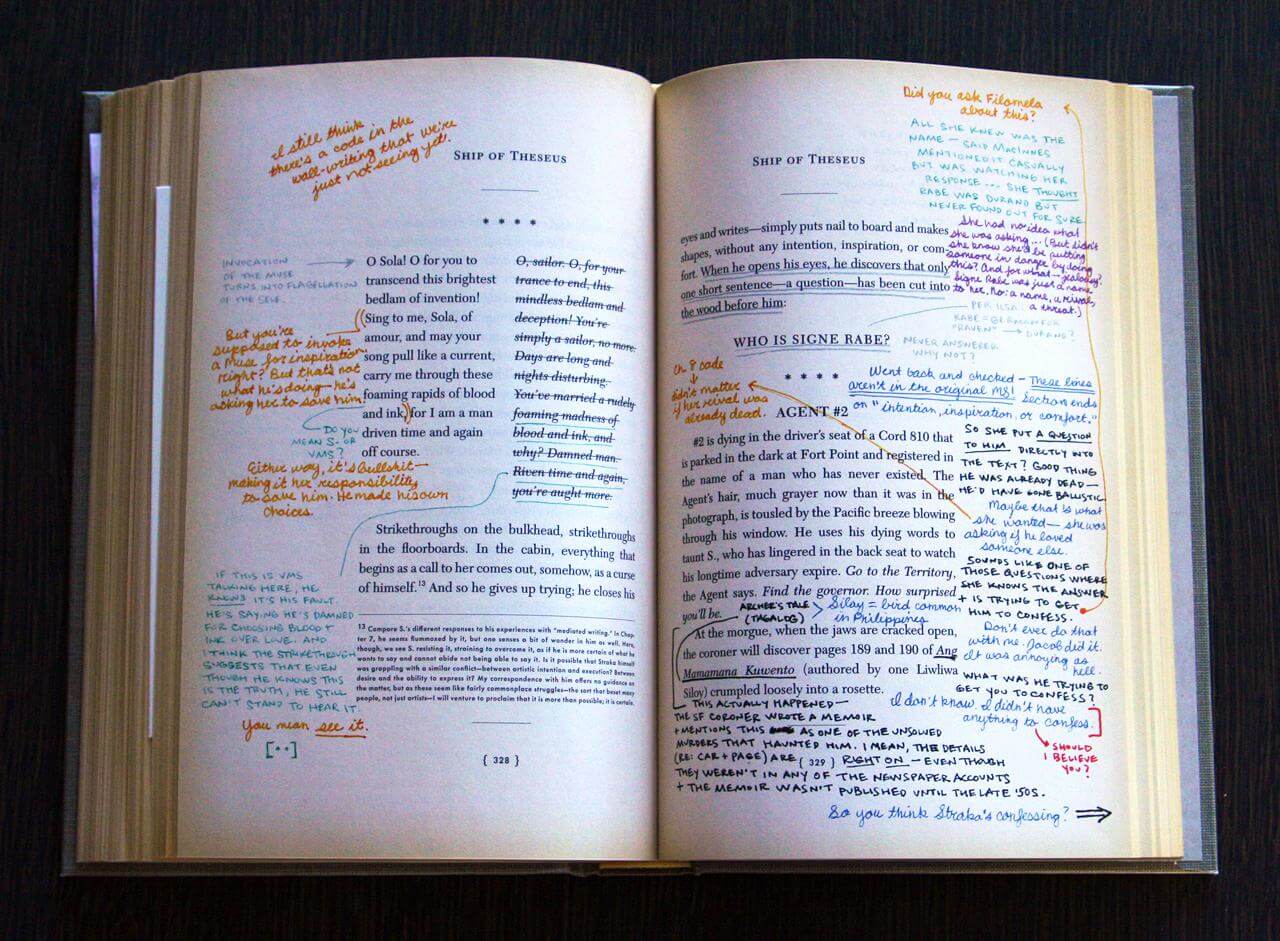 I still think
there's a code in the
wall-writing that we're
just not seeing yet.
SHIP OF THESEUS
* * * *
INVOCATION
OF THE MUSE
TURNS INTO FLAGELLATION
OF THE SELF.
O Sola! O for you to
transcend this brightest
bedlam of invention!
Sing to me, Sola, of
amour, and may your
song pull like a current,
carry me through these
foaming rapids of blood
and ink, for I am a man
driven time and again
off course.
O, sailor. O, for your
trance to end, this
mindless bedlam and
deception! You're
simply a sailor, no more.
Days are long and
nights disturbing.
You've married a rudely
foaming madness of
blood and ink, and
why? Damned man.
Riven time and again,
you're aught more.
But you're
supposed to invoke
a Muse for inspiration,
right? But that's not
what he's doing—he's
asking her to save him!
DO YOU
MEAN S. OR
VMS?
Either way, it's bullshit—
making it her responsibility
to save him. He made his own
choices.
Strikethroughs on the bulkhead, strikethroughs
in the floorboards. In the cabin, everything that
begins as a call to her comes out, somehow, as a curse
of himself.13 And so he gives up trying; he closes his
IF THIS IS VMS
TALKING HERE, HE
KNOWS IT'S HIS FAULT.
HE'S SAYING HE'S DAMNED
FOR CHOOSING BLOOD +
INK OVER LOVE. AND
I THINK THE STRIKETHROUGH
SUGGESTS THAT EVEN
THOUGH HE KNOWS THIS
IS THE TRUTH, HE STILL
CAN'T STAND TO HEAR IT.
You mean see it.
[••]
13 Compare S.'s different responses to his experiences with "mediated writing." In Chap-
ter 7, he seems flummoxed by it, but one senses a bit of wonder in him as well. Here,
though, we see S. resisting it, straining to overcome it, as if he is more certain of what he
wants to say and cannot abide not being able to say it. Is it possible that Straka himself
was grappling with a similar conflict—between artistic intention and execution? Between
desire and the ability to express it? My correspondence with him offers no guidance on
the matter, but as these seem like fairly commonplace struggles—the sort that beset many
people, not just artists—I will venture to proclaim that it is more than possible; it is certain.
{ 328 }
Did you ask Filomela
about this?
ALL SHE KNEW WAS THE
NAME — SAID MACINNES
MENTIONED IT CASUALLY
BUT WAS WATCHING HER
RESPONSE... SHE THOUGHT
RABE WAS DURAND BUT
NEVER FOUND OUT FOR SURE
She had no idea what
she was asking... (But didn't
she know she'd be putting
someone in danger by doing
this? And for what—jealousy?
Signe Rabe was just a name
to her. No: a name, a rival,
a threat.)
SHIP OF THESEUS
eyes and writes—simply puts nail to board and makes
shapes, without any intention, inspiration, or com-
fort. When he opens his eyes, he discovers that only
one short sentence—a question—has been cut into
the wood before him:
PER ILSA:
RABE = GERMAN FOR
"RAVEN" → DURAND?
WHO IS SIGNE RABE?
NEVER ANSWERED
WHY NOT?
* * * *
Ch 8 code
↓
didn't matter
if her rival was
already dead.
Went back and checked – These lines
aren't in the original MS! Section ends
on "intention, inspiration, or comfort."
AGENT #2
#2 is dying in the driver's seat of a Cord 810 that
is parked in the dark at Fort Point and registered in
the name of a man who has never existed. The
Agent's hair, much grayer now than it was in the
photograph, is tousled by the Pacific breeze blowing
through his window. He uses his dying words to
taunt S., who has lingered in the back seat to watch
his longtime adversary expire. Go to the Territory,
the Agent says. Find the governor. How surprised
you'll be.
SO SHE PUT A QUESTION
TO HIM DIRECTLY INTO
THE TEXT? GOOD THING
HE WAS ALREADY DEAD—
HE'D HAVE GONE BALLISTIC
Maybe that is what
she wanted—she was
asking if he loved
someone else.
SOUNDS LIKE ONE OF
THOSE QUESTIONS WHERE
SHE KNOWS THE ANSWER
+ IS TRYING TO GET
HIM TO CONFESS.
ARCHER'S TALE
(TAGALOG)
Silay = bird common
in Philippines
At the morgue, when the jaws are cracked open,
the coroner will discover pages 189 and 190 of Ang
Mamamana Kuwento (authored by one Liwliwa
Siloy) crumpled loosely into a rosette.
Don't ever do that
with me. Jacob did it.
It was annoying as
hell.
WHAT WAS HE TRYING TO
GET YOU TO CONFESS?
I don't know. I didn't have
anything to confess.
SHOULD
I BELIEVE
YOU?
THIS ACTUALLY HAPPENED—
THE SF CORONER WROTE A MEMOIR
+ MENTIONS THIS AS ONE OF THE UNSOLVED
MURDERS THAT HAUNTED HIM. I MEAN, THE DETAILS
(RE: CAR + PAGE) ARE RIGHT ON – EVEN THOUGH
THEY WEREN'T IN ANY OF THE NEWSPAPER ACCOUNTS
+ THE MEMOIR WASN'T PUBLISHED UNTIL THE LATE '50S.
{ 329 }
So you think Straka's confessing? ⇒